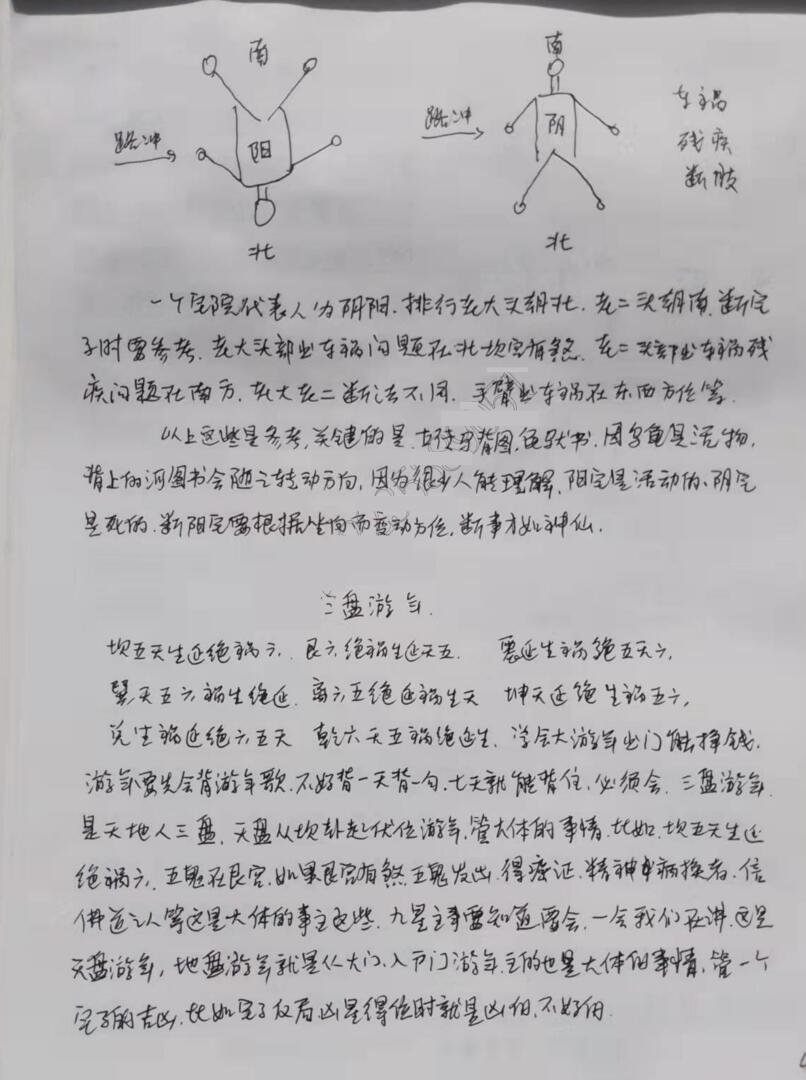 南 南
路冲 阳 路冲 阴 车祸
残疾
断肢
北 北
一个宅院代表人为阴阳.排行老大头朝北.老二头朝南.断宅
子时要参考.老大头部出车祸问题在北坎宫有煞.老二头部出车祸残
疾问题在南方.老大老二断法不同.手臂出车祸在东西方位等.
以上这些是参考,关键的是,背图,书.因为龟是活物,
背上的河图书会随之转动方向,因为很少人能理解,阳宅是活动的,阴宅
是死的.断阳宅要根据坐向而变动方位,断事才如神仙.
三盘游年.
坎五天生延绝祸六.艮六绝祸生延天五.震延生祸绝五天六,
巽天五六祸生绝延.离六五绝延祸生天 坤天延绝生祸五六,
兑生祸延绝六五天 乾六天五祸绝延生.学会大游年出门能挣钱.
游年要先会背游年歌.不好背一天背一句.七天就能背住,必须会.三盘游年
是天地人三盘.天盘从坎卦起伏位游年,管大体的事情.比如.坎五天生延
绝祸六.五鬼在艮宫.如果艮宫有煞五鬼发凶.得癌证.精神病患者.信
佛道之人等这是大体的事主这些.九星主事要知道要会.一会我们在讲.这是
天盘游年,地盘游年就是从大门.入户门游年.主的也是大体的事情,管一个
宅子的吉凶.比如宅子反局凶星得位时就是凶的,不好的.